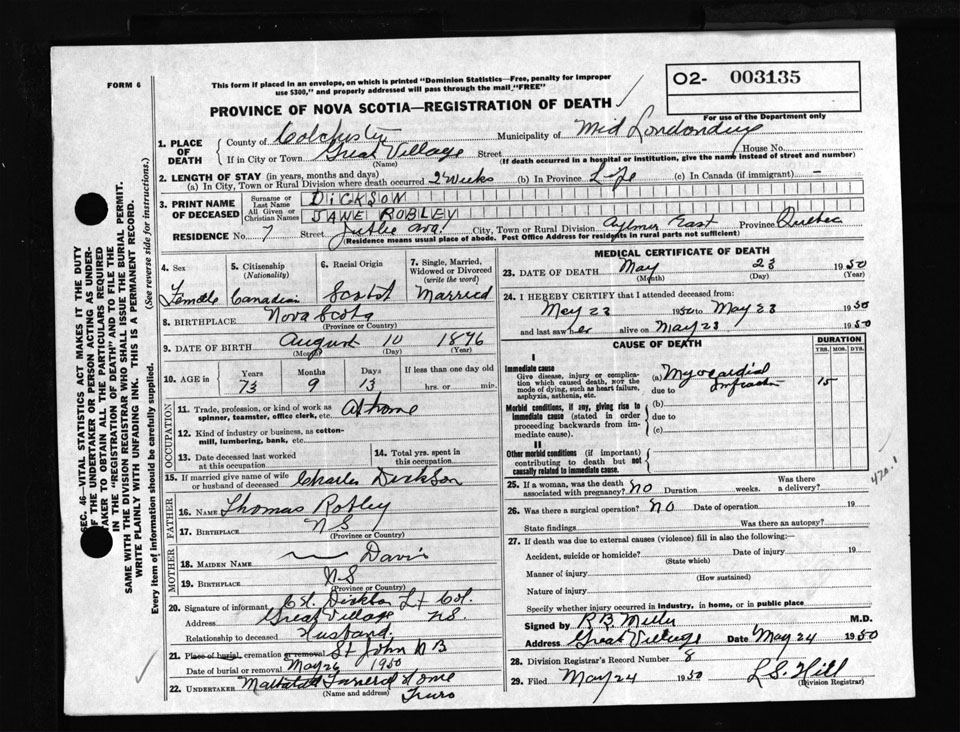 FORM 6
This form if placed in an envelope, on which is printed "Dominion Statistics—Free, penalty for improper
use $300," and properly addressed will pass through the mail "FREE"
O2- 003135
For use of the Department only
PROVINCE OF NOVA SCOTIA—REGISTRATION OF DEATH
1. PLACE OF DEATH
County of Colchester Municipality of Mid Londonderry
If in City or Town Great Village Street House No.
(Name) (If death occurred in a hospital or institution, give the name instead of street and number)
2. LENGTH OF STAY (in years, months and days)
(a) In City, Town or Rural Division where death occurred 2 weeks (b) In Province Life (c) In Canada (if immigrant) –
3. PRINT NAME OF DECEASED
Surname or Last Name DICKSON
All Given or Christian Names JANE ROBLEY
RESIDENCE No. 7 Street Ave. City, Town or Rural Division Aylmer East Province Quebec
(Residence means usual place of abode. Post Office Address for residents in rural parts not sufficient)
4. Sex Female
5. Citizenship (Nationality) Canadian
6. Racial Origin Scotch
7. Single, Married, Widowed or Divorced (write the word) Married
8. BIRTHPLACE Nova Scotia
(Province or Country)
9. DATE OF BIRTH August 10 1876
(Month) (Day) (Year)
10. AGE in Years Months Days If less than one day old
73 9 13 hrs. or min.
OCCUPATION
11. Trade, profession, or kind of work as spinner, teamster, office clerk, etc. At home
12. Kind of industry or business, as cotton-mill, lumbering, bank, etc.
13. Date deceased last worked at this occupation
14. Total yrs. spent in this occupation
15. If married give name of wife or husband of deceased Charles Dickson
FATHER
16. NAME Thomas Robley
17. BIRTHPLACE N S
(Province or Country)
MOTHER
18. MAIDEN NAME Davis
19. BIRTHPLACE N S
(Province or Country)
20. Signature of informant Dickson Lt Col.
Address Great Village NS.
Relationship to deceased Husband.
21. Place of burial, cremation or removal St John N B
Date of burial or removal May 26 1950
22. UNDERTAKER Funeral Home
(Name and address) Truro
MEDICAL CERTIFICATE OF DEATH
23. DATE OF DEATH May 23 1950
(Month) (Day) (Year)
24. I HEREBY CERTIFY that I attended deceased from:
May 23 1950 to May 23 1950
and last saw her alive on May 23 1950
CAUSE OF DEATH
DURATION
YRS. MOS. DYS.
I
Immediate cause
Give disease, injury or complication which caused death, NOT the mode of dying, such as heart failure, asphyxia, asthenia, etc.
(a) Myocardial Infraction 15
due to
Morbid conditions, if any, giving rise to immediate cause (stated in order proceeding backwards from immediate cause).
(b)
due to
(c)
II
Other morbid conditions (if important) contributing to death but not causally related to immediate cause.
420.1
25. If a woman, was the death associated with pregnancy? NO Duration weeks. Was there a delivery?
26. Was there a surgical operation? NO Date of operation 19
State findings Was there an autopsy?
27. If death was due to external causes (violence) fill in also the following:—
Accident, suicide or homicide? Date of injury 19
(State which)
Manner of injury
(How sustained)
Nature of injury
Specify whether injury occurred in industry, in home, or in public place
Signed by R B Miller M.D.
Address Great Village Date May 24 1950
28. Division Registrar's Record Number 8
29. Filed May 24 1950 L.S. Hill
(Division Registrar)
SEC. 46—VITAL STATISTICS ACT MAKES IT THE DUTY
OF THE UNDERTAKER OR PERSON ACTING AS UNDER-
TAKER TO OBTAIN ALL THE PARTICULARS REQUIRED
IN THE "REGISTRATION OF DEATH" AND TO FILE THE
SAME WITH THE DIVISION REGISTRAR WHO SHALL ISSUE THE BURIAL PERMIT.
WRITE PLAINLY WITH UNFADING INK. THIS IS A PERMANENT RECORD.
Every item of information should be carefully supplied. (See reverse side for instructions.)